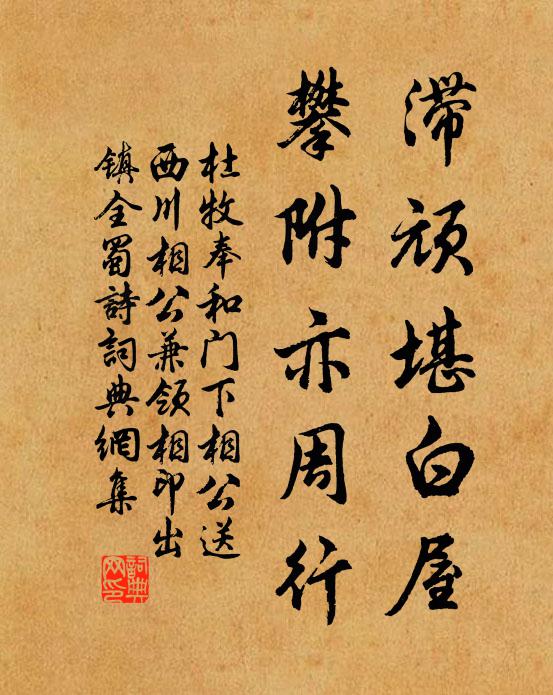 滞顽堪白屋
攀附亦周行
杜牧奉和门下相公送
西川相公兼领相印出
镇全蜀詩詞典網集
詞典网印